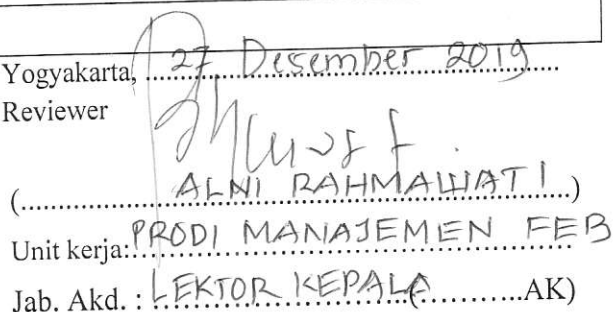 Yogyakarta, 27 Desember 2019
Reviewer
(ALNI RAHMAWATI)
Unit kerja: PRODI MANAJEMEN FEB
Jab. Akd. : LEKTOR KEPALA (..........AK)